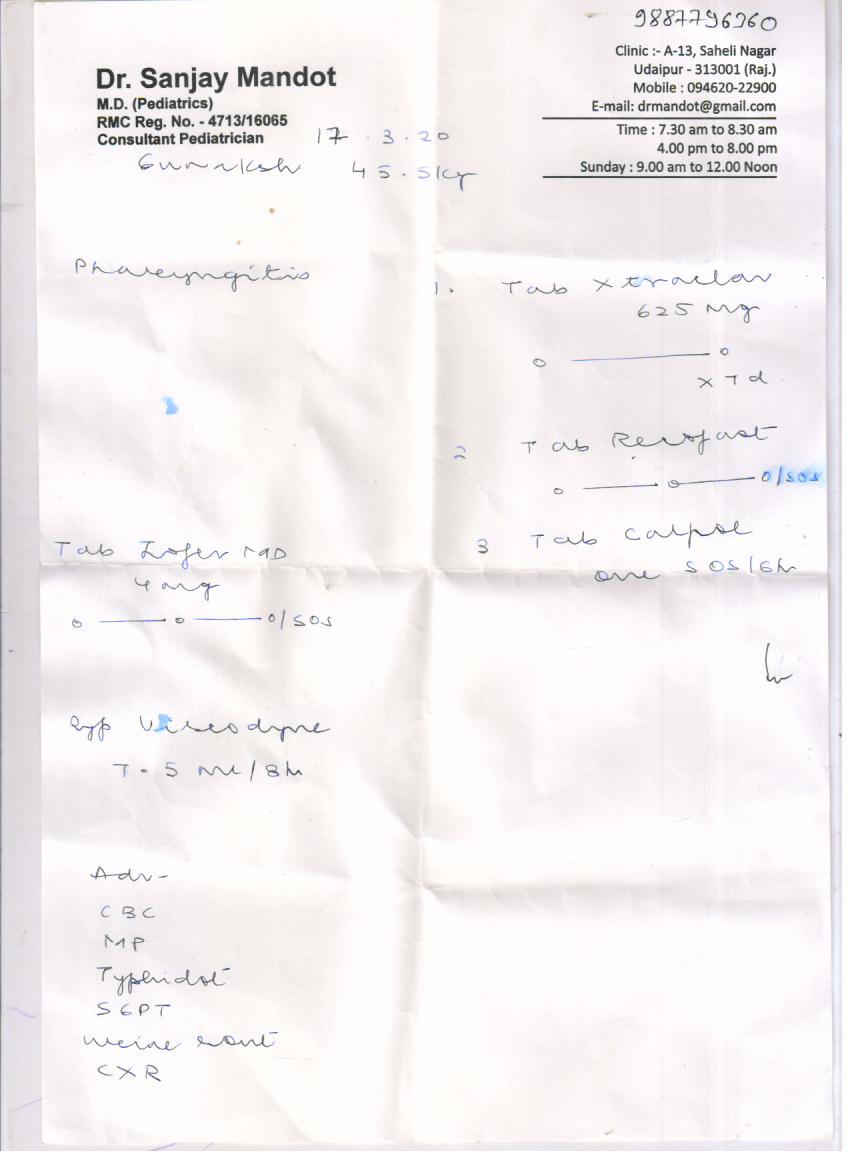 9887796260
Dr. Sanjay Mandot
M.D. (Pediatrics)
RMC Reg. No. - 4713/16065
Consultant Pediatrician
Clinic :- A-13, Saheli Nagar
Udaipur - 313001 (Raj.)
Mobile : 094620-22900
E-mail: drmandot@gmail.com
Time : 7.30 am to 8.30 am
4.00 pm to 8.00 pm
Sunday : 9.00 am to 12.00 Noon
17.3.20
45.5kg
Pharyngitis
1. Tab Xtraclav
625 mg
o — o
x 7 d
2 Tab
o — o — o/sos
3 Tab Calpol
one SOS/6h
Tab Zofer MD
4 mg
o — o — o/sos
Syp Viscodyne
7.5 ml/8h
Adv-
CBC
MP
Typhidot
SGPT
Urine rout
CXR